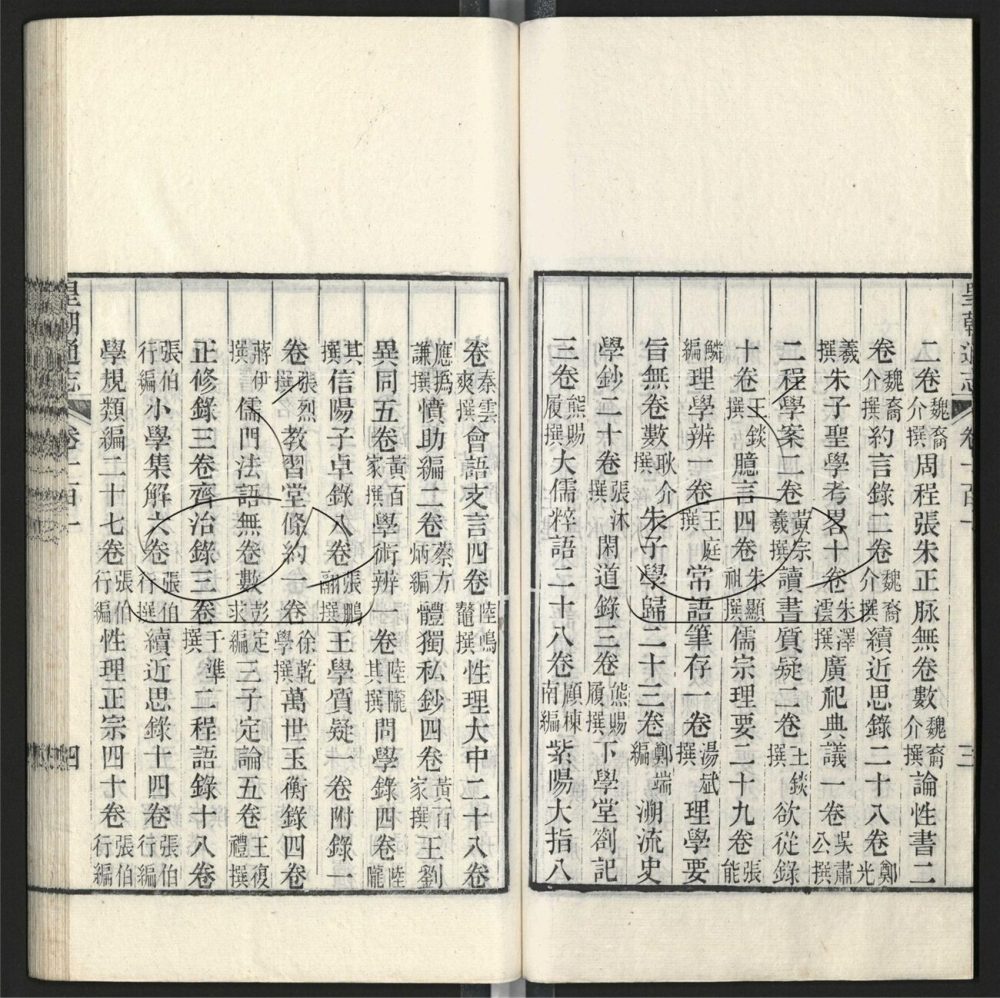 二卷魏裔介撰周程張朱正脉無卷數魏裔介撰論性書二
卷魏裔介撰約言錄二卷魏裔介撰續近思錄二十八卷鄭光
羲撰朱子聖學考畧十卷朱澤澐撰廣祀典議一卷吳肅公撰
二程學案二卷黃宗羲撰讀書質疑二卷王錟撰欲從錄
十卷王錟撰臆言四卷朱顯祖撰儒宗理要二十九卷張能
鱗編理學辨一卷王庭撰常語筆存一卷湯斌撰理學要
旨無卷數耿介撰朱子學歸二十三卷鄭端編溯流史
學鈔二十卷張沐撰閑道錄三卷熊賜履撰下學堂劄記
三卷熊賜履撰大儒粹語二十八卷顧棟南編紫陽大指八
皇朝通志
卷一百一
三
卷秦雲爽撰會語支言四卷陸鳴鼇撰性理大中二十八卷
應撝謙撰憤助編二卷蔡方炳編體獨私鈔四卷黃百家撰王劉
異同五卷黃百家撰學術辨一卷陸隴其撰問學錄四卷陸隴
其撰信陽子卓錄八卷張鵬翮撰王學質疑一卷附錄一
卷張烈撰教習堂條約一卷徐乾學撰萬世玉衡錄四卷
蔣伊撰儒門法語無卷數彭定求編三子定論五卷王復禮撰
正修錄三卷齊治錄三卷于準撰二程語錄十八卷
張伯行編小學集解六卷張伯行撰續近思錄十四卷張伯行編
學規類編二十七卷張伯行編性理正宗四十卷張伯行編
皇朝通志
卷一百一
四